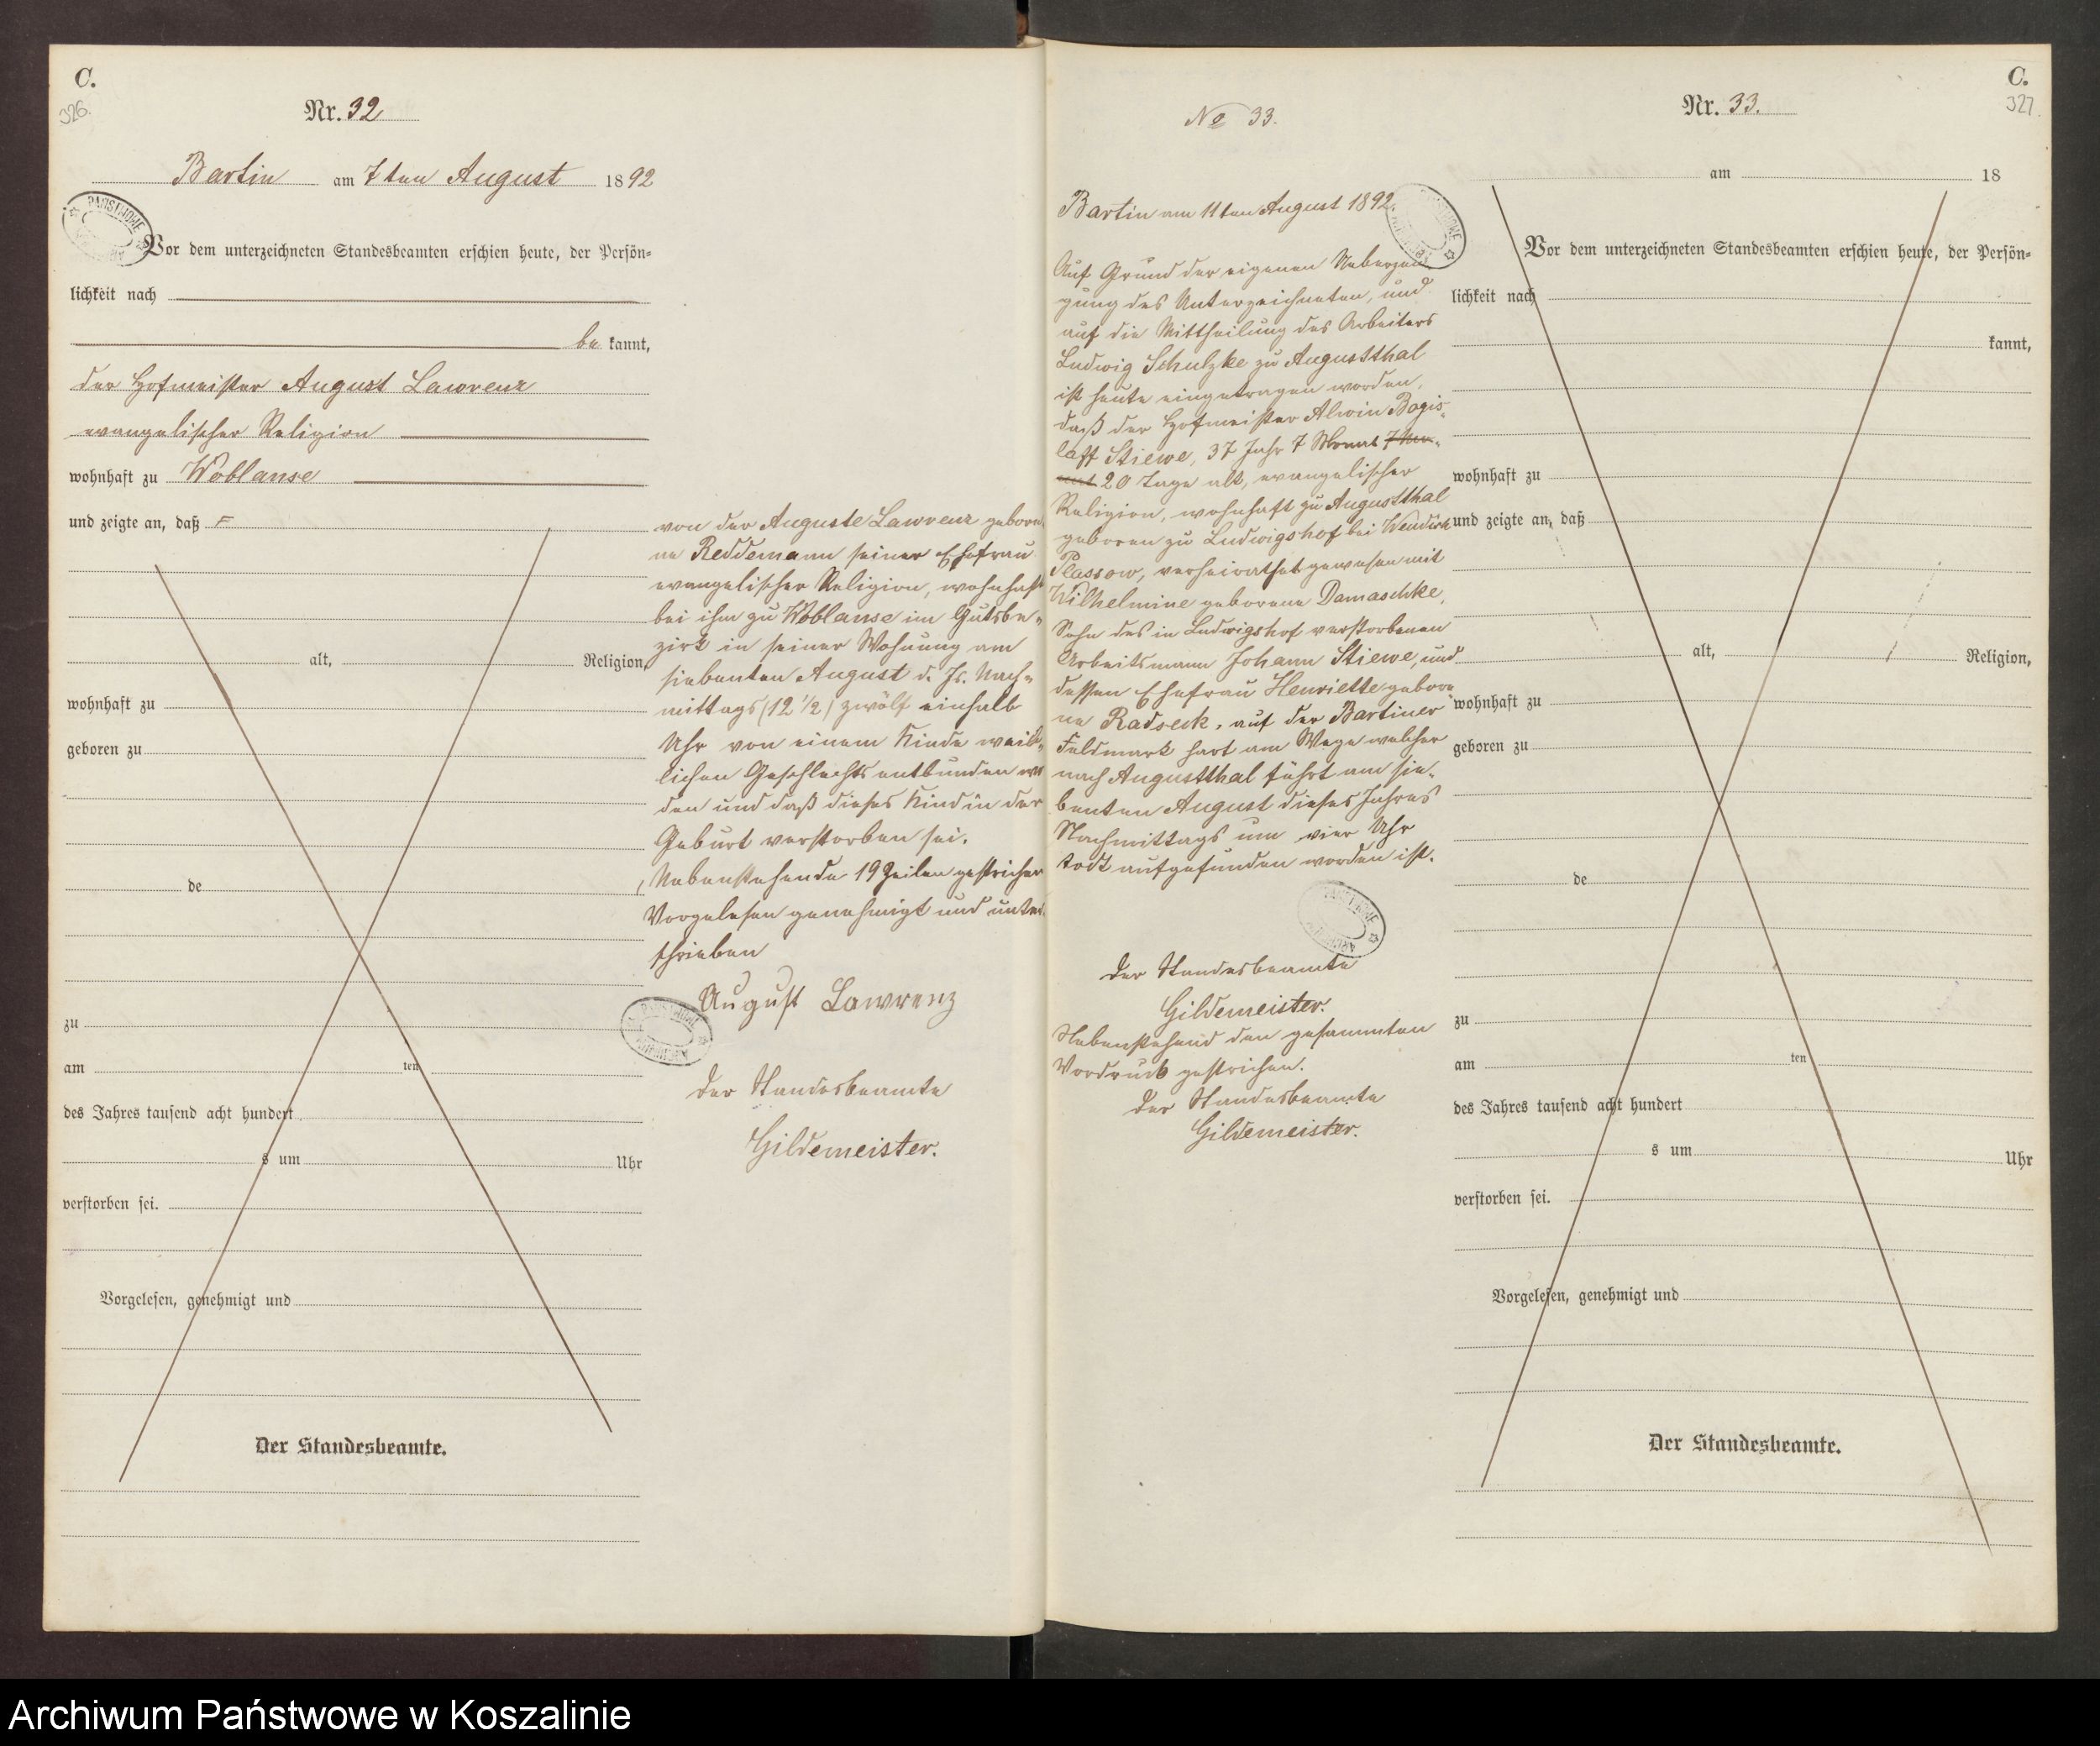 C.
326.
Nr. 32
Bartin am 7ten August 1892
Vor dem unterzeichneten Standesbeamten erschien heute, der Persön-
lichkeit nach
be kannt,
der Hofmeister August Lawrenz
evangelischer Religion
wohnhaft zu Woblanse
und zeigte an, daß
alt, Religion,
wohnhaft zu
geboren zu
de
zu
am ten
des Jahres tausend acht hundert
s um Uhr
verstorben sei.
Vorgelesen, genehmigt und
Der Standesbeamte.
von der Auguste Lawrenz gebore-
ne Reddemann seiner Ehefrau
evangelischer Religion, wohnhaft
bei ihm zu Woblanse im Gutsbe-
zirk in seiner Wohnung am
siebenten August d. Js. Nach-
mittags (12 1/2) zwölf einhalb
Uhr von einem Kinde weib-
lichen Geschlechts entbunden wor
den und daß dieses Kind in der
Geburt verstorben sei.
Nebenstehende 19 Zeilen gestrichen
Vorgelesen genehmigt und unter
schrieben
August Lawrenz
Der Standesbeamte
Gildemeister.
PAŃSTWOWE
ARCHIWUM
No 33.
Bartin am 11ten August 1892.
Auf Grund der eigenen Ueberzeu
gung des Unterzeichneten, und
auf die Mittheilung des Arbeiters
Ludwig Schulzke zu Augustthal
ist heute eingetragen worden,
daß der Hofmeister Alwin Bogis-
laff Stiewe, 37 Jahr 7 Monat
20 Tage alt, evangelischer
Religion, wohnhaft zu Augustthal
geboren zu Ludwigshof bei Wendisch
Plassow, verheirathet gewesen mit
Wilhelmine geborene Damaschke,
Sohn des in Ludwigshof verstorbenen
Arbeitsmann Johann Stiewe, und
dessen Ehefrau Henriette gebore
ne Radseck, auf der Bartiner
Feldmark hart am Wege welcher
nach Augustthal führt am sie-
benten August dieses Jahres
Nachmittags um vier Uhr
todt aufgefunden worden ist.
Der Standesbeamte
Gildemeister.
Nebenstehend den gesammten
Vordruck gestrichen.
Der Standesbeamte
Gildemeister.
C.
327
Nr. 33.
am 18
Vor dem unterzeichneten Standesbeamten erschien heute, der Persön-
lichkeit nach
kannt,
wohnhaft zu
und zeigte an, daß
alt, Religion,
wohnhaft zu
geboren zu
de
zu
am ten
des Jahres tausend acht hundert
s um Uhr
verstorben sei.
Vorgelesen, genehmigt und
Der Standesbeamte.
Archiwum Państwowe w Koszalinie